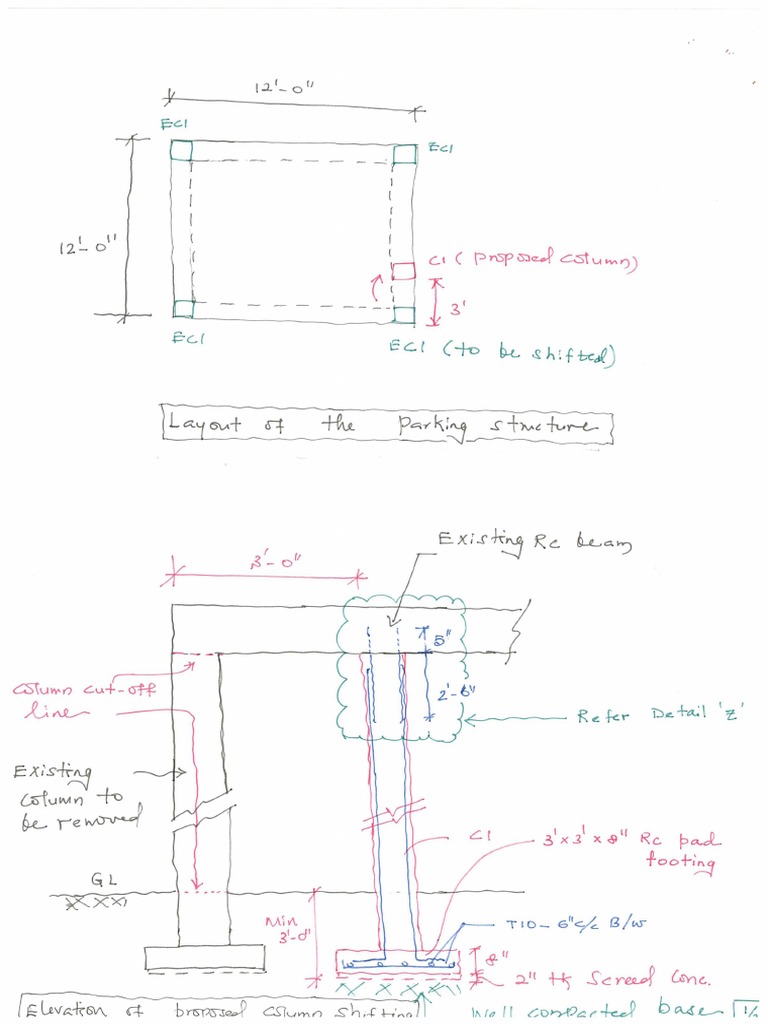 12'-0"
EC1
EC1
12'-0"
C1 ( Proposed column)
3'
EC1
EC1 (to be shifted)
Layout of the Parking structure
Existing Rc beam
3'-0"
5"
2'-6"
column cut-off
line
Refer Detail 'Z'
Existing
column to
be removed
C1
3'x3'x8" Rc pad
footing
GL
Min
3'-0"
T10-6"c/c B/W
8"
2" th Screed Conc.
Elevation of proposed column shifting
Well compacted base
1/2